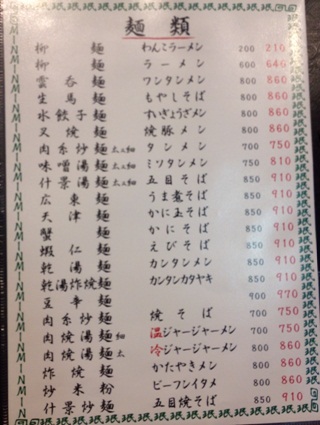 麺類
柳麺 わんこラーメン 200 210
柳麺 ラーメン 600 640
雲呑麺 ワンタンメン 800 860
生馬麺 もやしそば 800 860
水餃子麺 すいぎょうざメン 800 860
叉焼麺 焼豚メン 800 860
肉糸湯麺 太又細 タンメン 700 750
味噌湯麺 太又細 ミソタンメン 750 810
什景湯麺 太又細 五目そば 850 910
広東麺 うま煮そば 850 910
天津麺 かに玉そば 850 910
蟹麺 かにそば 850 910
蝦仁麺 えびそば 850 910
乾湯麺 カンタンメン 850 910
乾湯炸焼麺 カンタンカタヤキ 850 910
豆辛麺 900 970
肉糸炒麺 焼そば 700 750
肉焼湯麺 細 温ジャージャーメン 700 750
肉焼湯麺 太 冷ジャージャーメン 800 860
炸焼麺 かたやきメン 800 860
炒米粉 ビーフンイタメ 800 860
什景炒麺 五目焼そば 850 910